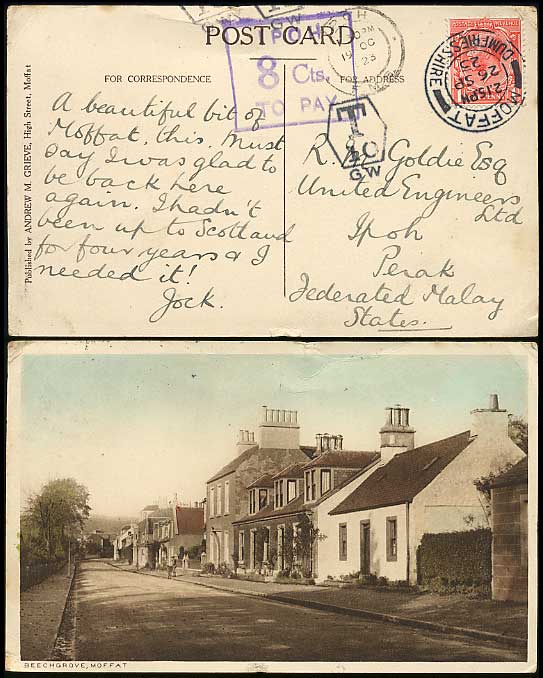 POST CARD
IPOH
8 Cts.
TO PAY
G.W
FOR CORRESPONDENCE
FOR ADDRESS
MOFFAT
DUMFRIESSHIRE
2.15PM
26 SP
23
19 OC
23
T
G.W
Published by ANDREW M. GRIEVE, High Street, Moffat
A beautiful bit of
Moffat, this. Must
say I was glad to
be back here
again. I hadn't
been up to Scotland
for four years & I
needed it!
Jock.
R. Goldie Esq
United Engineers
Ltd
Ipoh
Perak
Federated Malay
States.
BEECHGROVE, MOFFAT